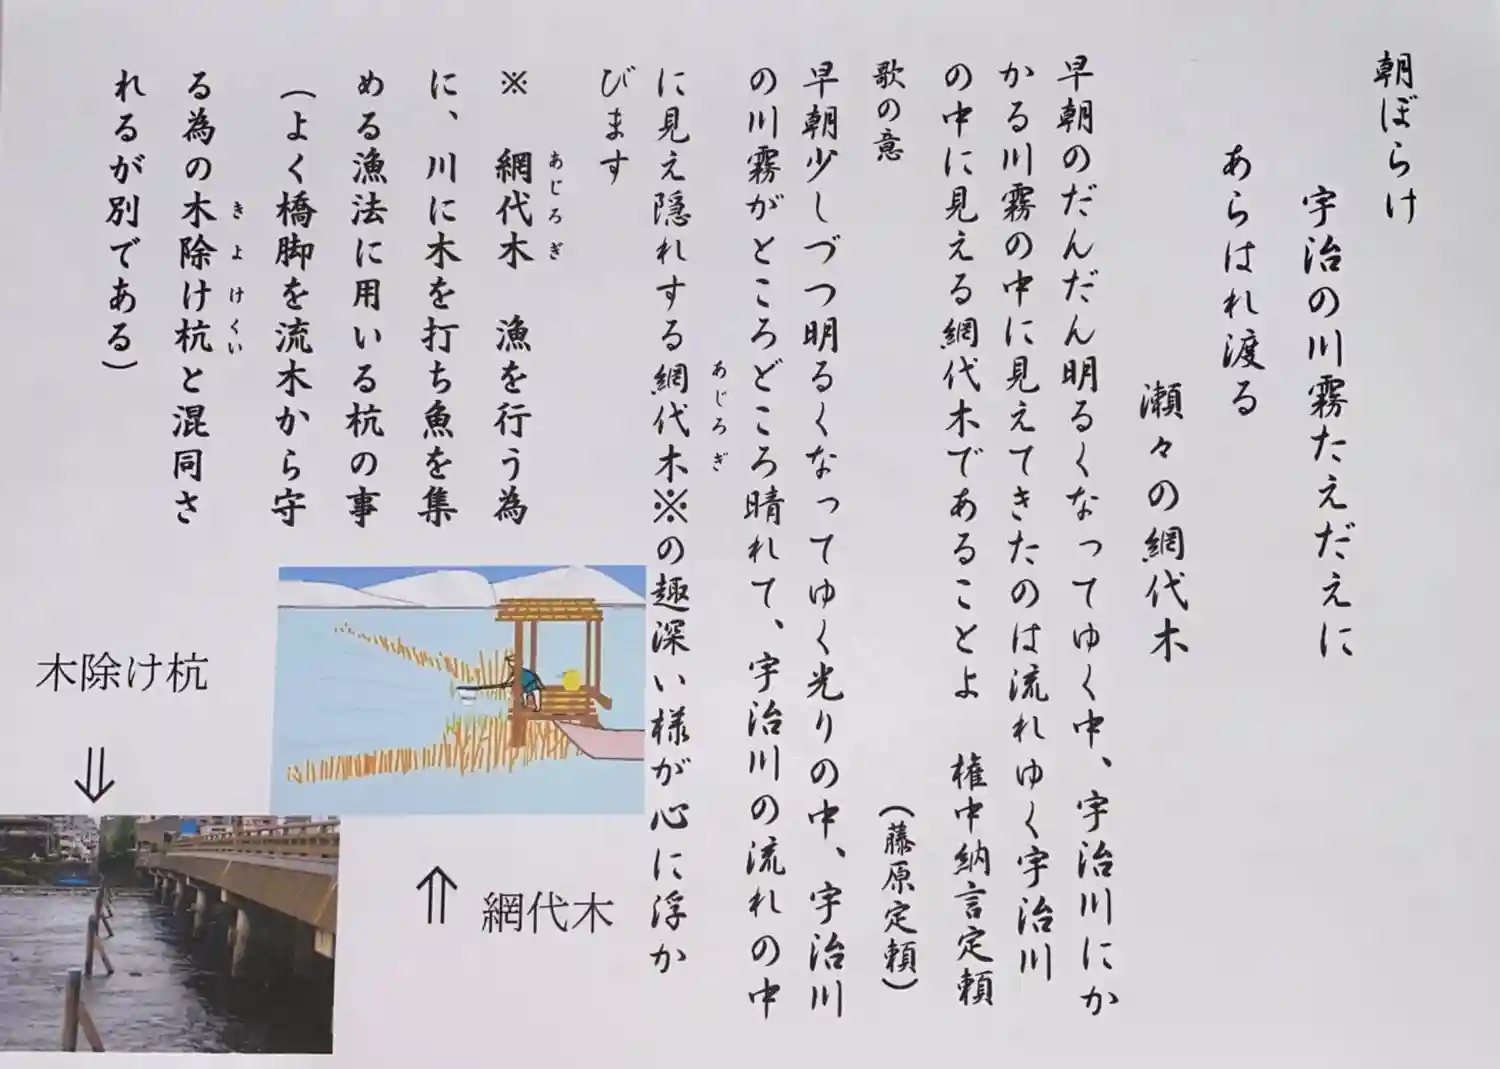 朝ぼらけ
宇治の川霧たえだえに
あらはれ渡る
瀬々の網代木
早朝のだんだん明るくなってゆく中、宇治川にか
かる川霧の中に見えてきたのは流れゆく宇治川
の中に見える網代木であることよ　権中納言定頼
（藤原定頼）
歌の意
早朝少しづつ明るくなってゆく光りの中、宇治川
の川霧がところどころ晴れて、宇治川の流れの中
あじろぎ
に見え隠れする網代木※の趣深い様が心に浮か
びます
あじろぎ
※　網代木　漁を行う為
に、川に木を打ち魚を集
める漁法に用いる杭の事
（よく橋脚を流木から守
きよけくい
る為の木除け杭と混同さ
れるが別である）
木除け杭
⇓
⇑
網代木